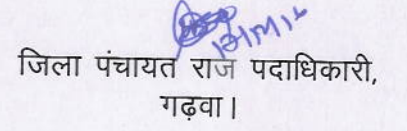 जिला पंचायत राज पदाधिकारी,
गढ़वा।